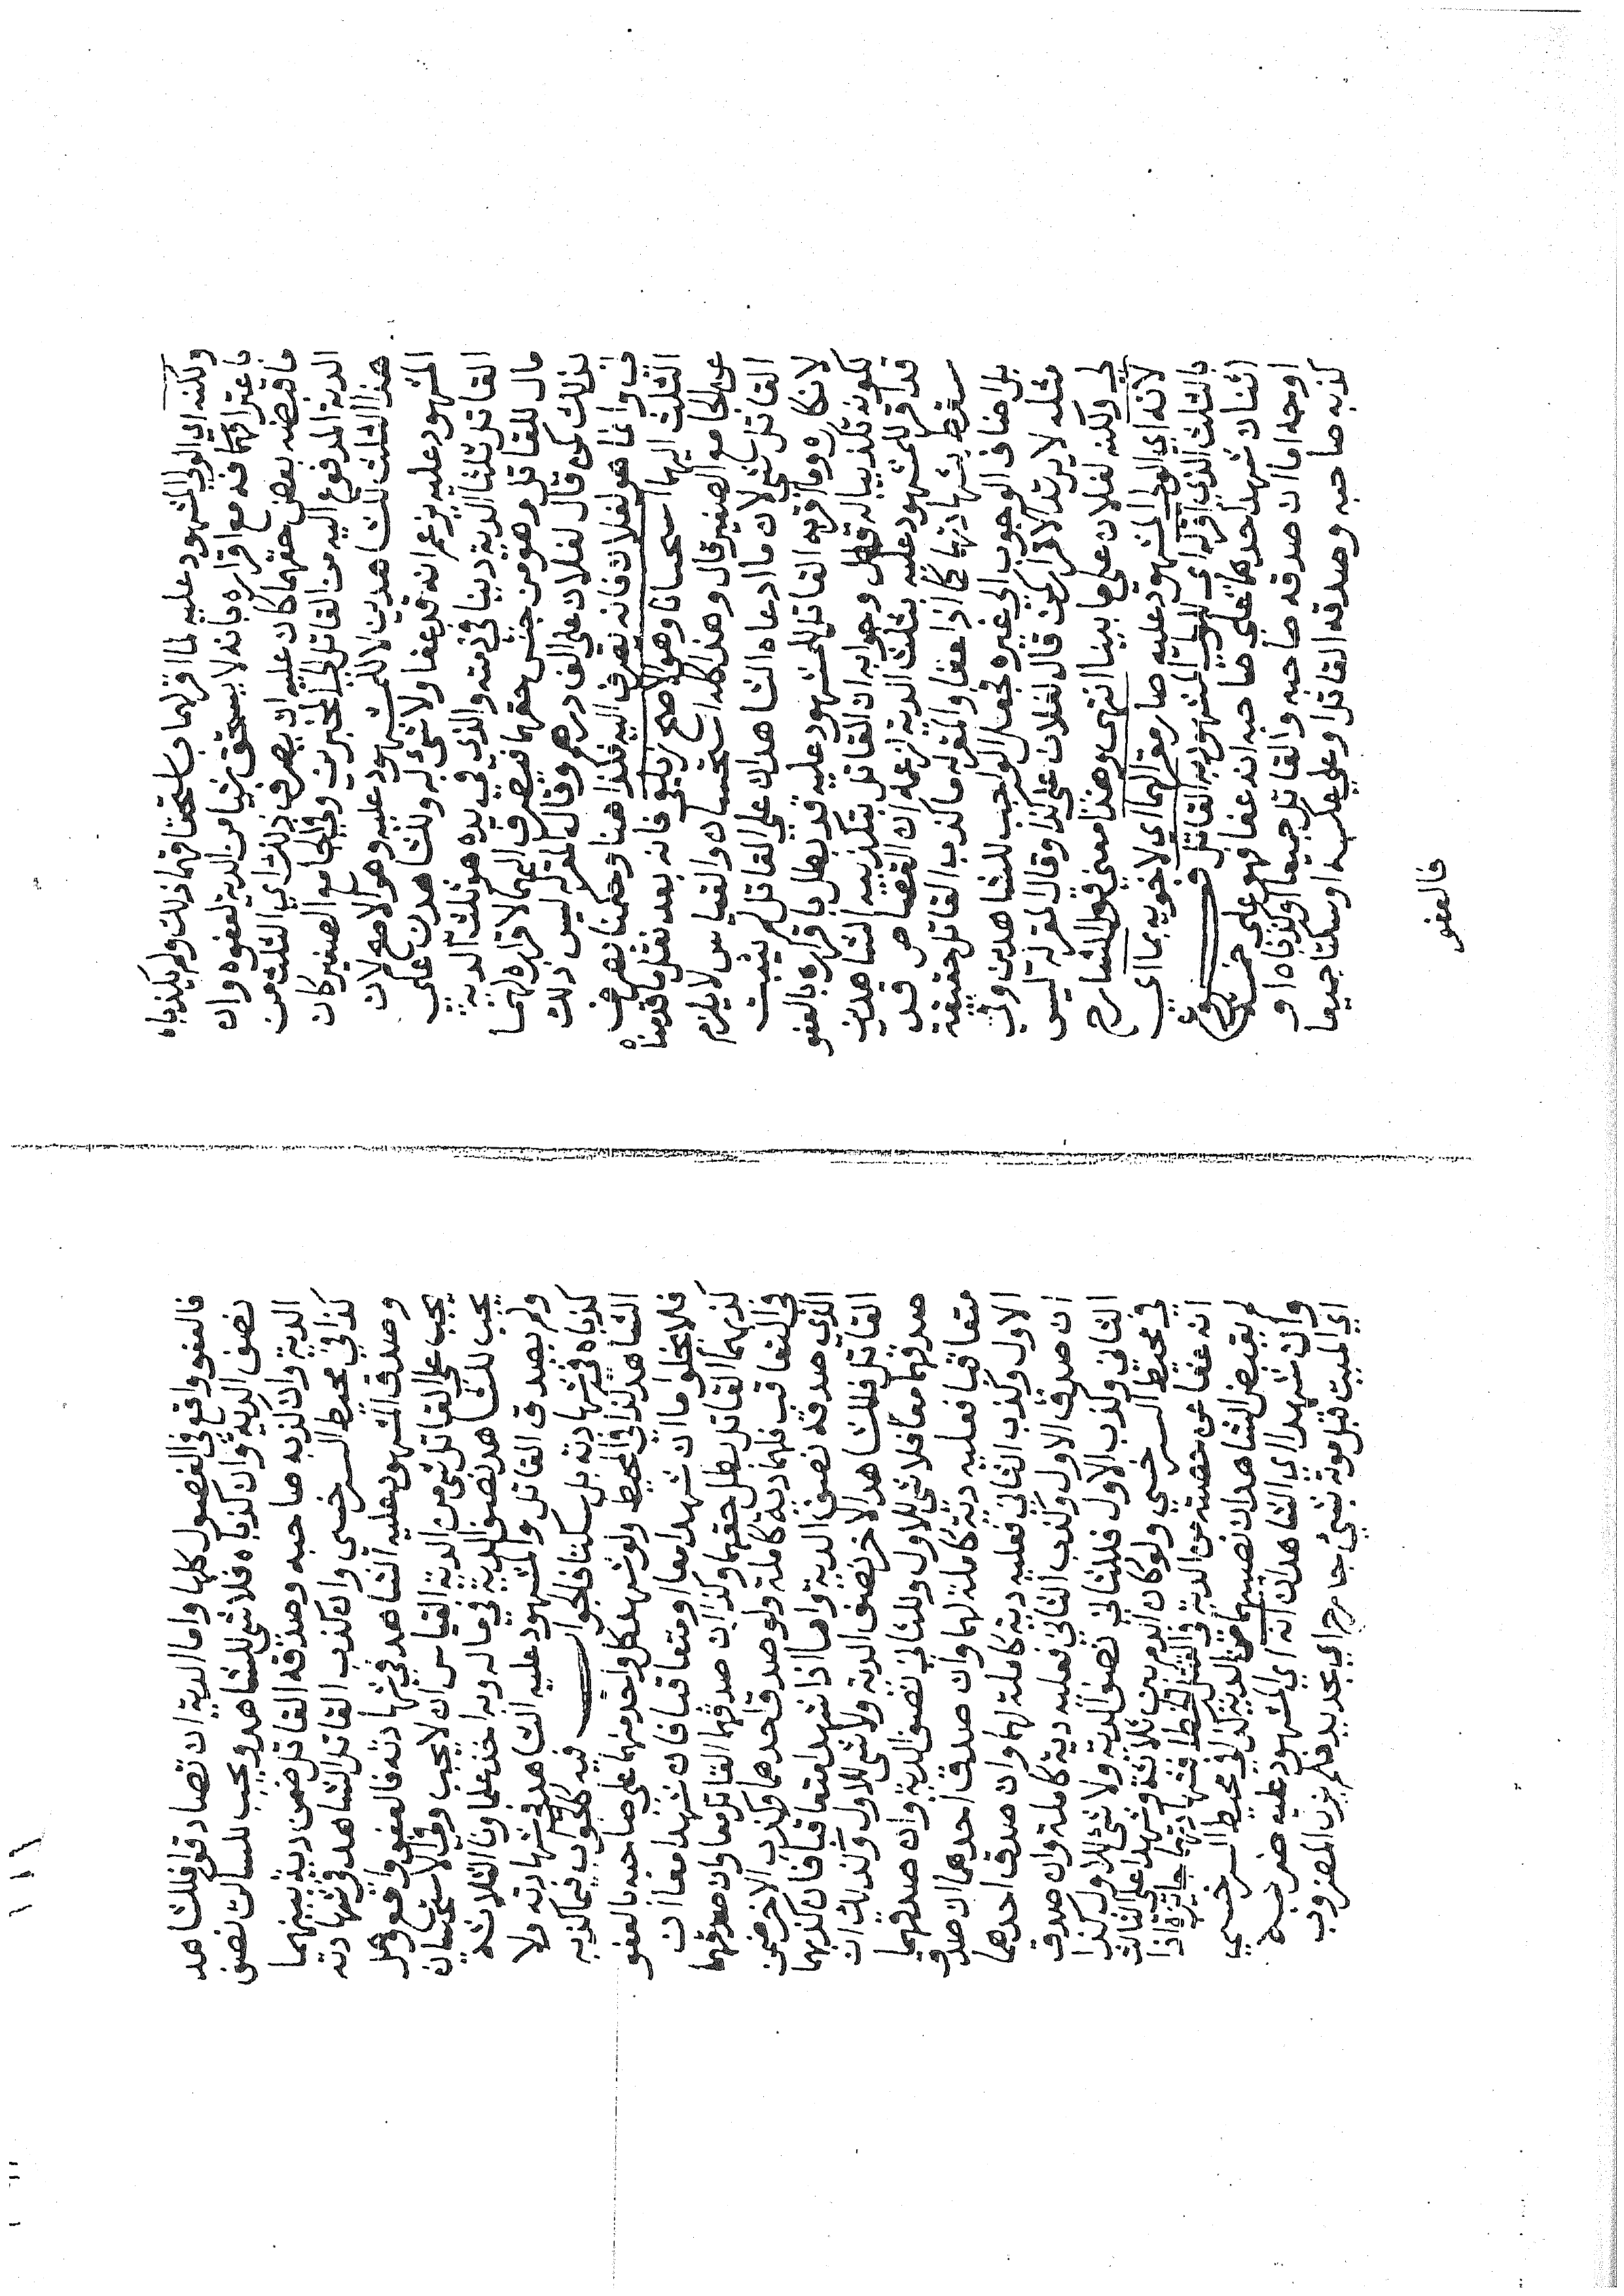 ولكنه اي الولي المشهود عليه لما اقر لهما باستحقاقهما ذلك ولم يكذباه
باعترافهما فد مع اقراره بانه لا يستحق شيا من الدية لعفوه وان
ما قبضه بعض حقهما كان عليه ان يصرف ذلك اي الثلث من
الدية المدفوع اليه من القاتل الى المخبرين وفي الجامع الصغير كان
هذا الثلث للشاهدين لا للمشهود عليه وهو الاصح لان
المشهود عليه يزعم انه قد عفا ولا شئ له وللشاهدين على
القاتل ثلثا الدية دينا في ذمته والذي في يده هو ثلث الدية
مال للقاتل وهو من جنس حقهما فيصرف اليهما لاقراره لهما
بذلك كمن قال لفلان علي الف درهم وقال المقر له ليس ذلك
لي وانما هو لفلان فانه يصرف اليه فكذا هنا وحكمنا بصرف
الثلث اليهما استحسانا وهو الاصح زيلعي فانه بعد نقل ما قدمناه
عن الجامع الصغير قال وهذا كله استحسان والقياس لا يلزم
القاتل شئ لان ما ادعاه الشاهدان على القاتل لم يثبت
لانكاره وما اقر به القاتل للمشهود عليه قد بطل باقراره بالعفو
لكونه تكذيبا له قبل وجوابه ان القاتل بتكذيبه الشاهدين
قد اقر للمشهود عليه بثلث الدية لزعمه ان القصاص قد
سقط بشهادتهما كما اذا عفا والمقر له ما كذب القاتل حقيقة
بل اضاف الوجوب الى غيره فجعل الواجب للشاهدين وفي
مثله لا يرتد الاقرار كمن قال لفلان علي كذا وقال المقر له ليس
لي ولكنه لفلان على ما بينا انتهى وهذا معنى قول الشارح
لانه اي الولي المشهود عليه صار مقرا لهما اي لاخويه بما اي
بالثلث الذي اقر له اي للولي المشهود به القاتل فروع
اثنان شهد احدهما على صاحبه انه عفا فهو على خمسة
اوجه اما ان صدقه صاحبه والقاتل جميعا او كذباه او
كذبه صاحبه وصدقه القاتل او على عكسه او سكتا جميعا
فالعفو
فالعفو واقع في الفصول كلها واما الدية ان تصادقوا فللشاهد
نصف الدية وان كذباه فلا شئ للشاهد ويجب للساكت نصف
الدية وان كذبه صاحبه وصدقه القاتل ضمن دية بينهما
كذا في محيط السرخسي وان كذب القاتل الشاهد في شهادته
وصدق المشهود عليه الشاهد في شهادته فالعفو واقع وهل
يجب على القاتل شئ من الدية القياس ان لا يجب وفي الاستحسان
يجب للشاهد نصف الدية في ماله وبه اخذ علماونا الثلاثة
ولم يصدق القاتل والمشهود عليه الشاهد في شهادته ولا
كذباه في شهادته بل سكتا فالجواب فيه كالجواب فيما كذبه
الشاهد كذا في المحيط ولو شهد كل واحد منهما على صاحبه بالعفو
فلا يخلو اما ان شهدا معا او متعاقبا فان شهدا معا ان
كذبهما القاتل بطل حقهما وكذا ان صدقهما القاتل معا وان صدقهما
في التعاقب فلهما دية كاملة ولو صدق احدهما وكذب الاخر ضمن
الذي صدقه نصف الدية واما اذا شهدا متعاقبا فان كذبهما
القاتل فللشاهد الاخر نصف الدية ولا شئ للاول وكذلك ان
صدقهما معا فلا شئ للاول وللثاني نصف الدية وان صدقهما
متعاقبا فعليه دية كاملة لهما وان صدق احدهما ان صدق
الاول وكذب الثاني فعليه دية كاملة لهما وان صدق احدهما
ان صدق الاول وكذب الثاني فعليه دية كاملة وان صدق
الثاني وكذب الاول فللثاني نصف الدية ولا شئ للاول كذا
في محيط السرخسي ولو كان الدم بين ثلاثة فشهد اثنان على الثالث
انه عفا عن حصته من الدية في القتل الخطا فشهادتهما جائزة اذا
لم يقبض الشاهدان نصيبهما من الدية كذا في محيط السرخسي
وان شهدا اي الشاهدان انه اي المشهود عليه ضربه
اي الميت قبل موته بشئ جارح اي بحديد فلم يزل المضروب